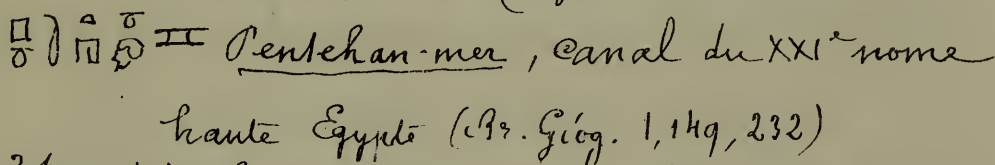 Pentehan-mer, canal du XXIᵉ nome
haute Égypte (Br. Géog. 1, 149, 232)